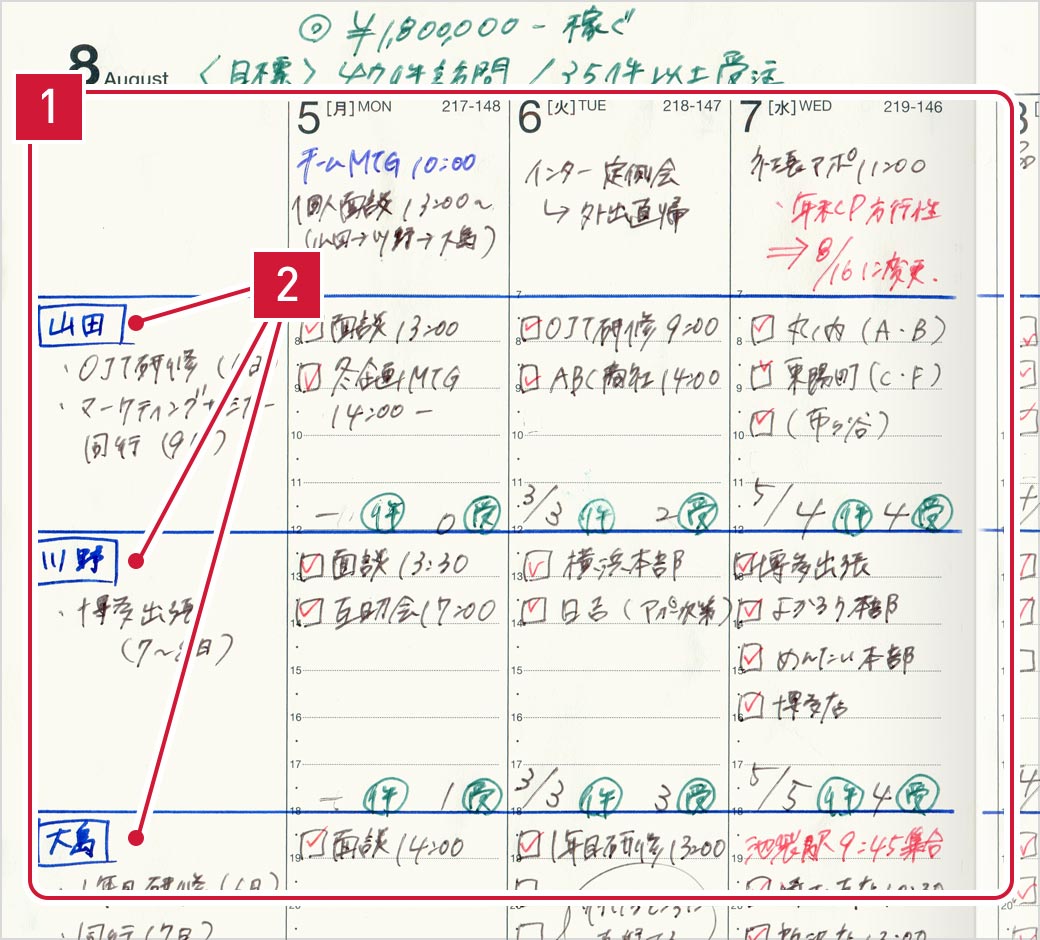 ◎ ¥1,800,000- 稼ぐ
8 August
〈目標〉 40件訪問 / 35件以上受注
1
5 [月] MON 217-148
チームMTG 10:00
個人面談 13:00〜
(山田→川野→大島)
6 [火] TUE 218-147
インター 定例会
↳ 外出直帰
7 [水] WED 219-146
社長アポ 11:00
・年末CP方行性
⇒ 8/16に変更.
2
山田
・OJT研修
・マーケティングセミナー
同行
7
面談 13:00
8
冬企画MTG
9
14:00 -
10
11
- 件 0 受
12
7
OJT研修 9:00
8
ABC商社 14:00
9
10
11
3/3 件 2 受
12
7
丸ノ内 (A・B)
8
東陽町 (C・F)
9
(市ヶ谷)
10
11
5/4 件 4 受
12
川野
・博多出張
面談 13:30
13
互助会 17:00
14
15
16
17
- 件 1 受
18
横浜本部
13
日吉 (アポ次第)
14
15
16
17
3/3 件 3 受
18
博多出張
13
よかろう本部
14
めんたい本部
15
博多店
16
17
5/5 件 4 受
18
大島
・1年目研修 (6日)
・同行 (7日)
面談 14:00
19
20
1年目研修 13:00
19
20
池袋駅 9:45集合
19
20